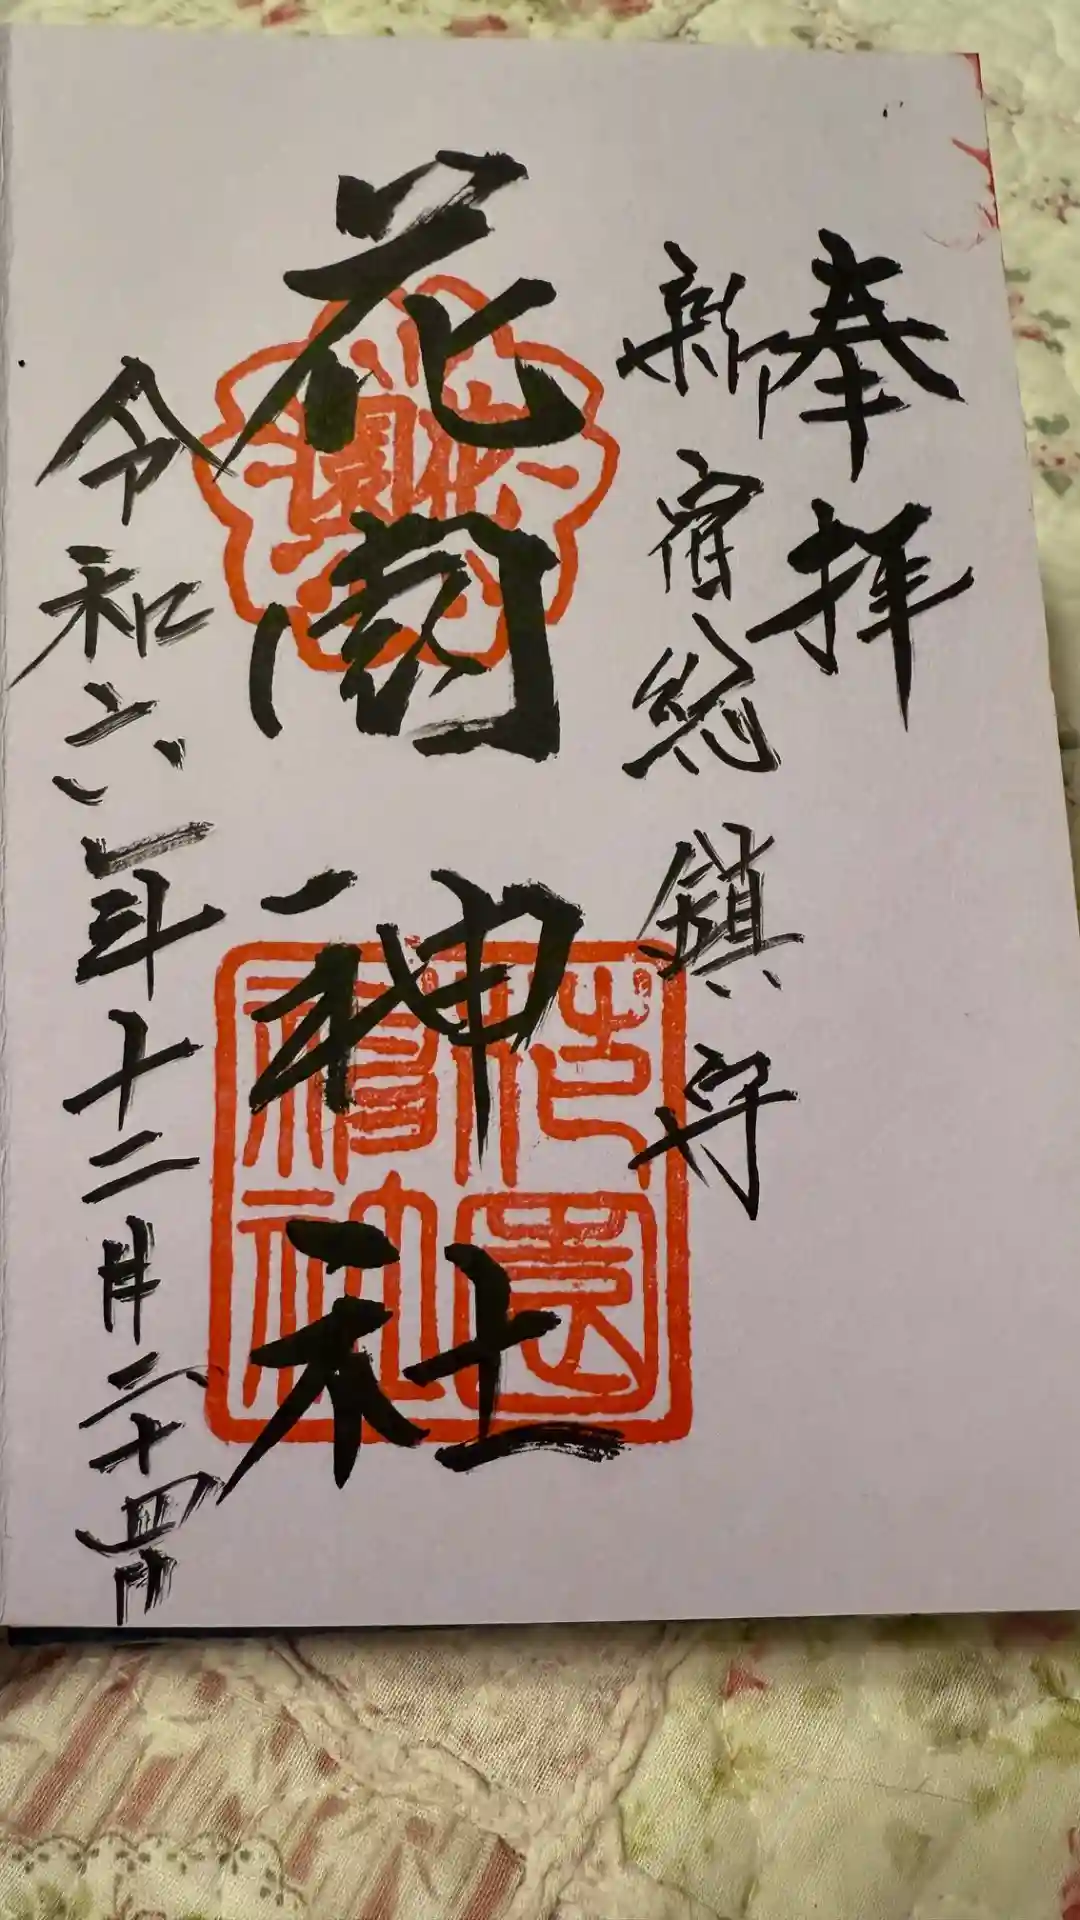 奉拝
新宿総鎮守
花園神社
令和六年十二月二十四日
花園
花園神社